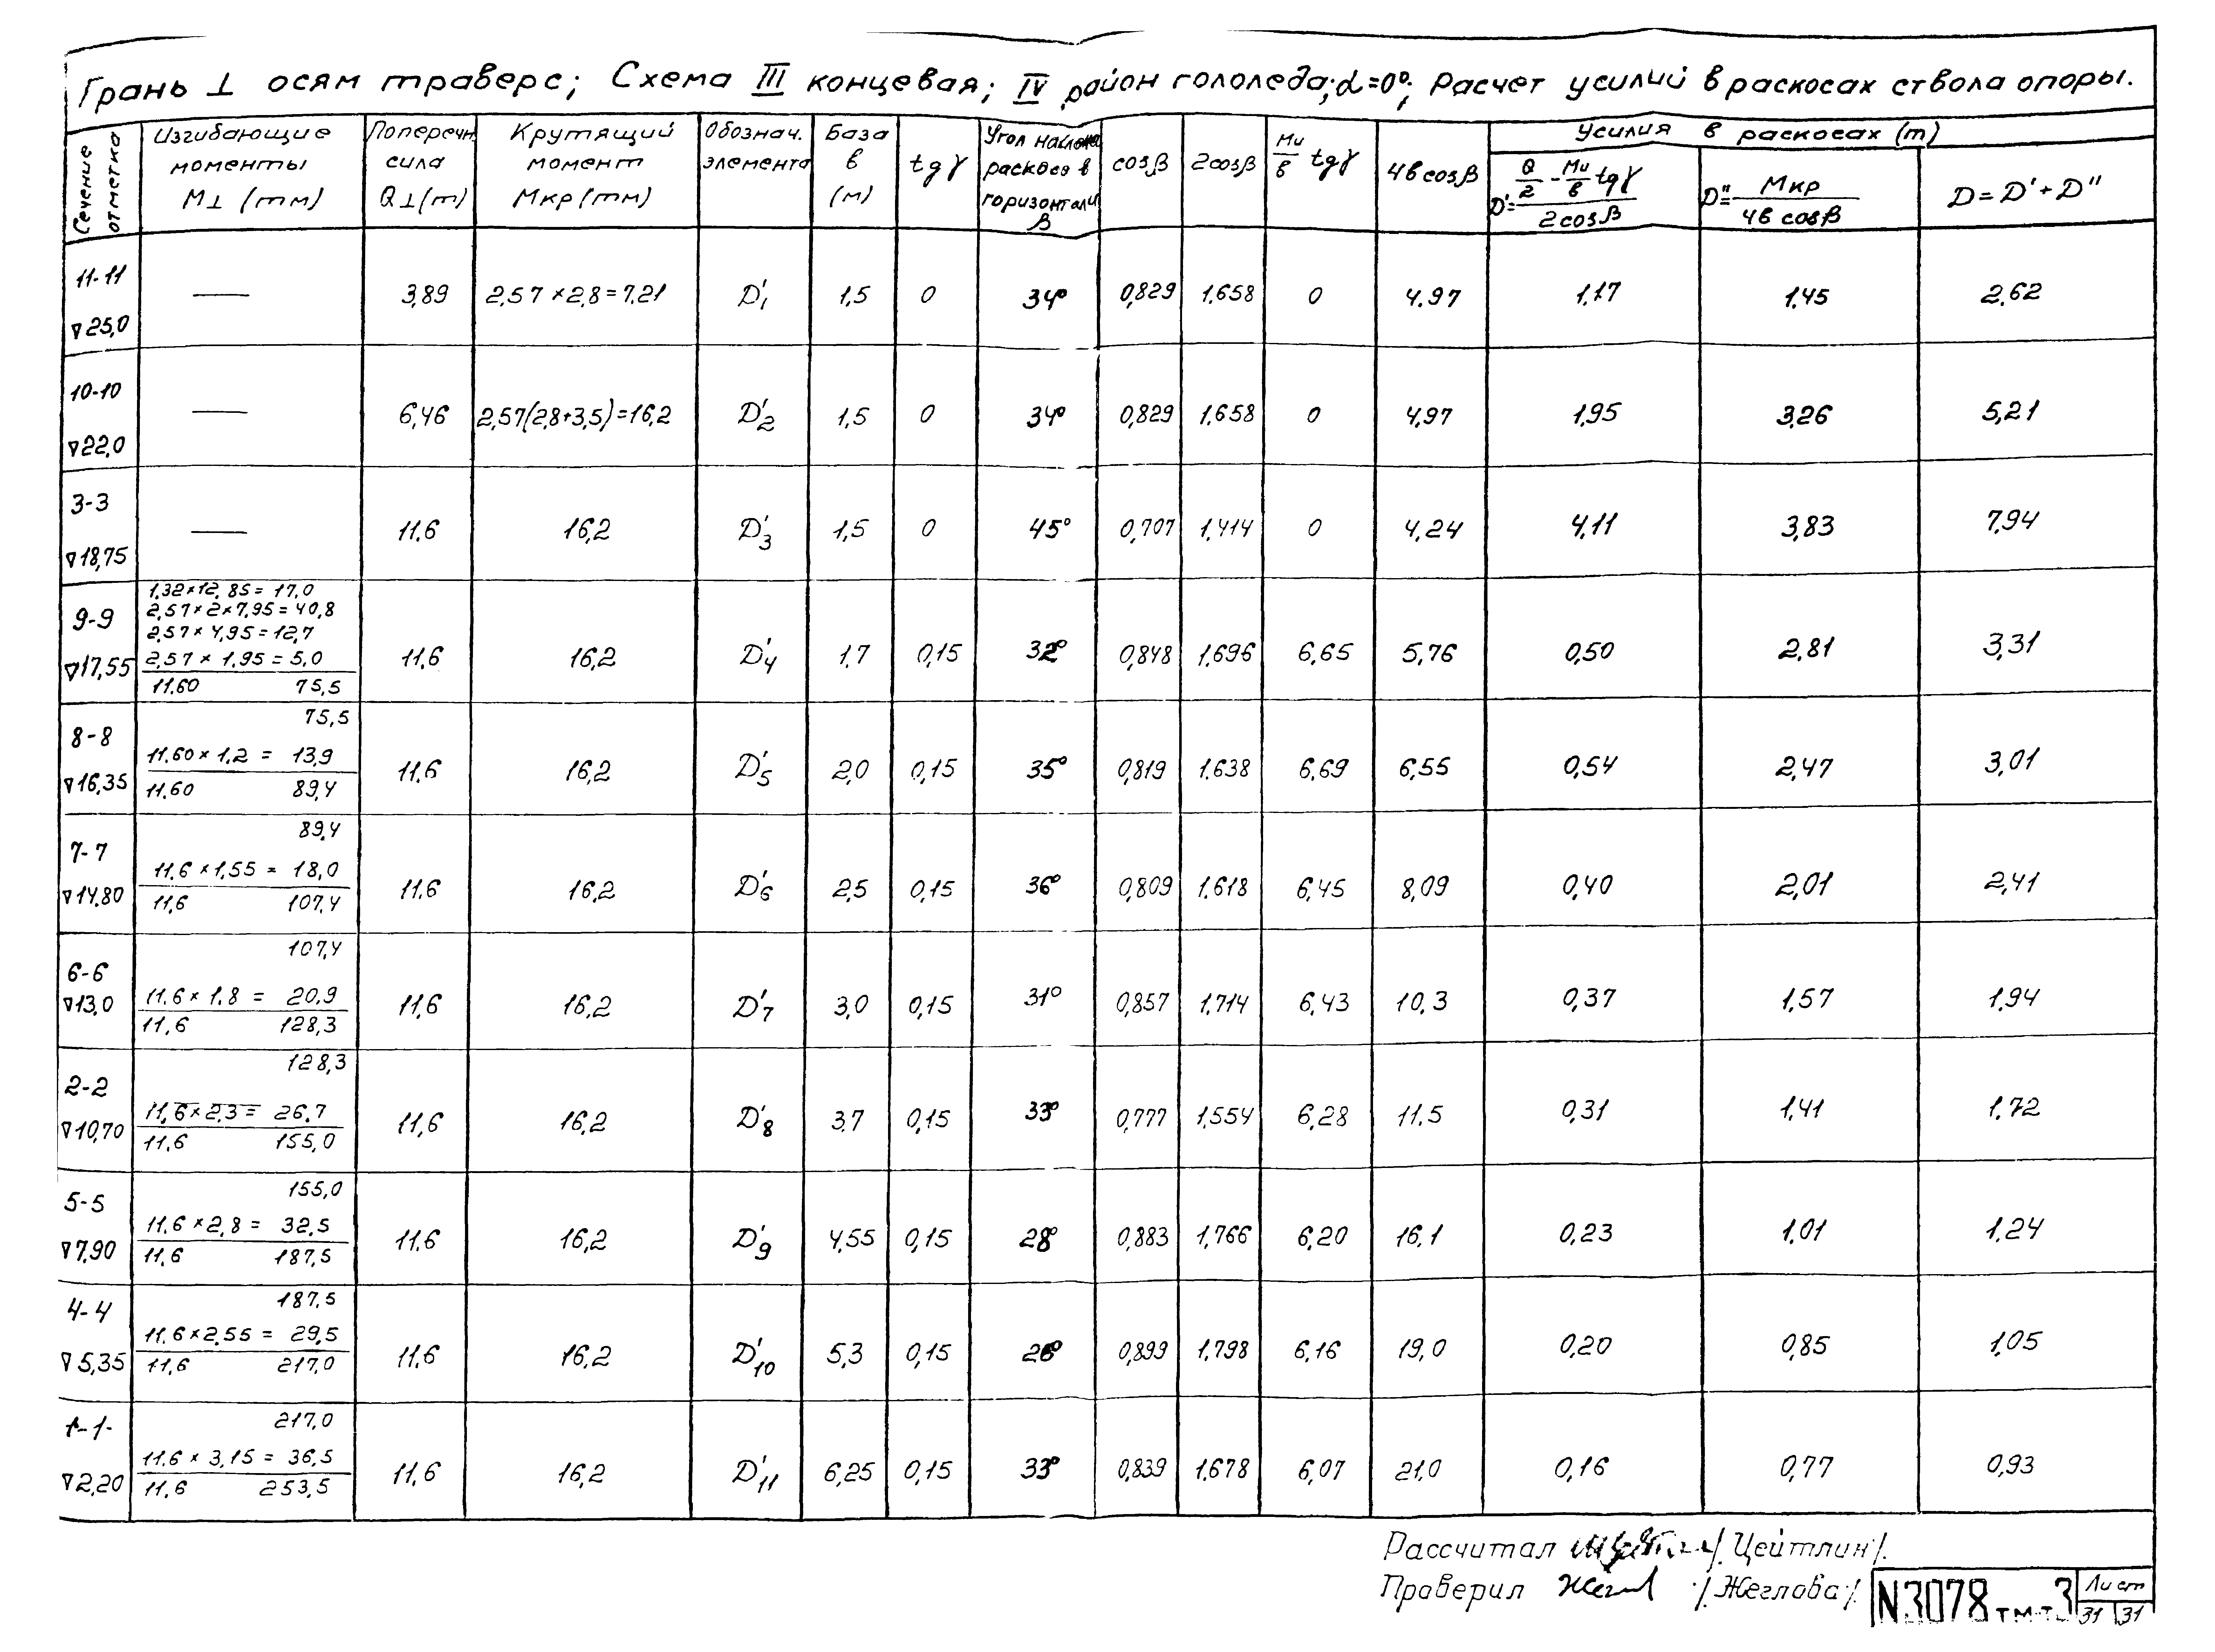 Грань ⊥ осям траверс; Схема III концевая; IV район гололеда; α=0°; Расчет усилий в раскосах ствола опоры.
Сечение отметка | Изгибающие моменты М⊥ (тм) | Поперечн. сила Q⊥(т) | Крутящий момент Мкр (тм) | Обознач. элемента | База в (м) | tgγ | Угол наклона раскоса в горизонтали β | cosβ | 2cosβ | Ми/в tgγ | 4в cosβ | Усилия в раскосах (т)
D'= (Q/2 - Ми/в tgγ)/2cosβ | D''= Мкр/4в cosβ | D = D' + D''
11-11 ∇25,0 | — | 3,89 | 2,57×2,8=7.21 | D'1 | 1,5 | 0 | 34° | 0,829 | 1.658 | 0 | 4.97 | 1,17 | 1,45 | 2,62
10-10 ∇22,0 | — | 6,46 | 2,57(2,8+3,5)=16,2 | D'2 | 1,5 | 0 | 34° | 0,829 | 1.658 | 0 | 4,97 | 1,95 | 3,26 | 5,21
3-3 ∇18,75 | — | 11.6 | 16,2 | D'3 | 1,5 | 0 | 45° | 0,707 | 1,414 | 0 | 4,24 | 4,11 | 3,83 | 7,94
1,32×12,85=17,0
2,57×2×7,95=40,8
2,57×4,95=12,7
2,57×1,95=5,0
11.60 75,5
9-9 ∇17,55 | 11,6 | 16,2 | D'4 | 1.7 | 0,15 | 32° | 0,848 | 1.696 | 6,65 | 5,76 | 0,50 | 2,81 | 3,31
75,5
11.60×1.2 = 13,9
11.60 89,4
8-8 ∇16,35 | 11.6 | 16,2 | D'5 | 2,0 | 0,15 | 35° | 0,819 | 1.638 | 6,69 | 6,55 | 0,54 | 2,47 | 3,01
89,4
11.6×1,55 = 18,0
11.6 107,4
7-7 ∇14.80 | 11.6 | 16,2 | D'6 | 2,5 | 0,15 | 36° | 0,809 | 1.618 | 6,45 | 8,09 | 0,40 | 2,01 | 2,41
107,4
11.6×1.8 = 20,9
11.6 128,3
6-6 ∇13,0 | 11,6 | 16,2 | D'7 | 3,0 | 0,15 | 31° | 0,857 | 1.714 | 6,43 | 10,3 | 0,37 | 1,57 | 1.94
128,3
11,6×2,3= 26,7
11.6 155,0
2-2 ∇10,70 | 11,6 | 16,2 | D'8 | 3,7 | 0,15 | 33° | 0,777 | 1,554 | 6,28 | 11.5 | 0,31 | 1,41 | 1.72
155,0
11.6×2,8= 32,5
11.6 187,5
5-5 ∇7,90 | 11.6 | 16,2 | D'9 | 4,55 | 0,15 | 28° | 0,883 | 1,766 | 6,20 | 16,1 | 0,23 | 1.01 | 1.24
187,5
11.6×2,55 = 29,5
11.6 217,0
4-4 ∇5,35 | 11.6 | 16,2 | D'10 | 5,3 | 0,15 | 26° | 0,899 | 1.798 | 6,16 | 19,0 | 0,20 | 0,85 | 1,05
217,0
11.6×3,15 = 36,5
11.6 253,5
1-1 ∇2,20 | 11,6 | 16,2 | D'11 | 6,25 | 0,15 | 33° | 0,839 | 1.678 | 6,07 | 21,0 | 0,16 | 0,77 | 0,93
Рассчитал /Цейтлин/.
Проверил /Жеглова/.
N3078 тм-т.3 Лист
31 31